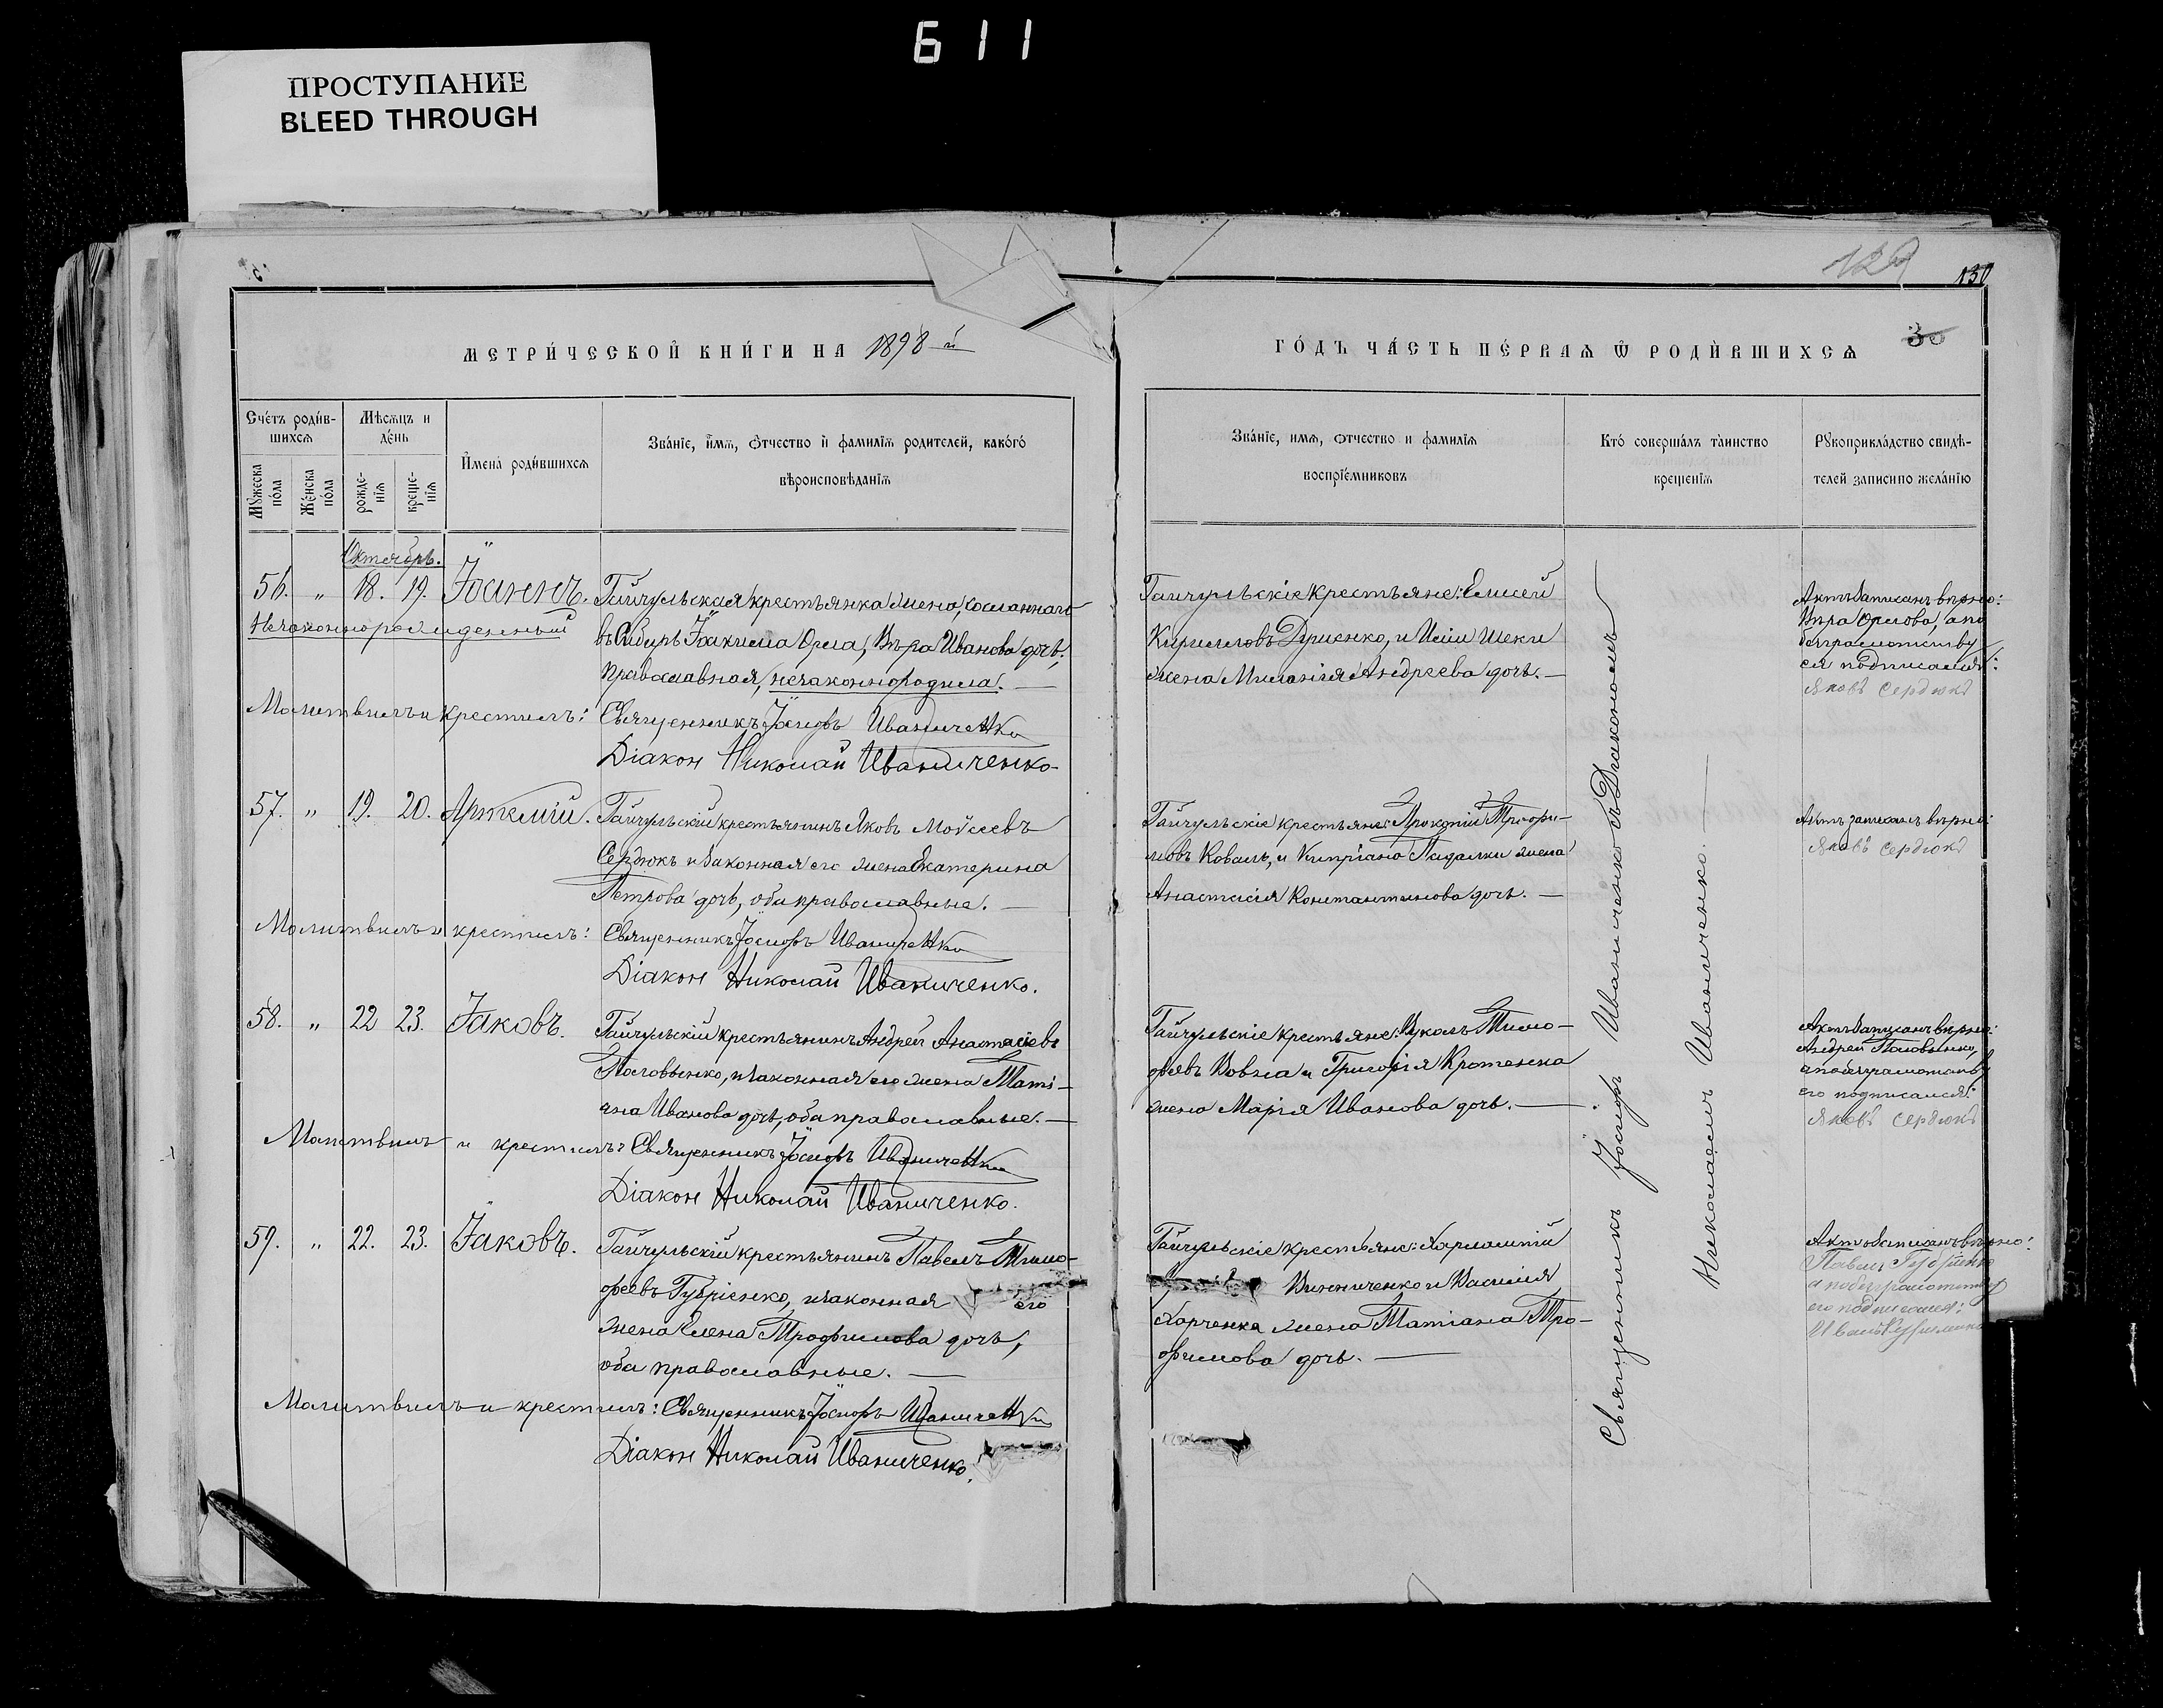 611
ПРОСТУПАНИЕ
BLEED THROUGH
129
130
МЕТРИ́ЧЕСКОЙ КНИ́ГИ НА 1898-й
ГО́ДЪ ЧА́СТЬ ПЕ́РВАѦ Ѿ РОДИ́ВШИХСѦ
30
Сче́тъ роди́в-
шихсѧ
Мѣ́сѧцъ и
де́нь
И҆мена̀ роди́вшихсѧ
Зва́нїе, и҆́мѧ, ѻ҆́тчество и҆ фамилїѧ родителей, како́гѡ
вѣроисповѣ́данїѧ
Мꙋ́жеска
по́ла
Же́нска
по́ла
рожде-
нїѧ
креще-
нїѧ
Зва́нїе, имѧ, ѻтчество и фамилїѧ
воспрїе́мниковъ
Кто́ соверша́лъ та́инство
креще́нїѧ
Рꙋкоприкла́дство свидѣ́-
телей записи по жела́нїю
Октябрь.
56. „ 18. 19. Іоаннъ. Гайчульская крестьянка жена, сосланнаго
Незаконнорожденный
въ Сибирь Іоакима Орла, Вѣра Иванова дочь,
православная, незаконнородила. —
Молитвилъ и крестилъ: Священникъ Іосифъ Иваниченко
Діакон Николай Иваниченко
Гайчульскіе крестьяне: Елисей
Кирилловъ Дуценко, и
жена Миланія Андреева дочь. —
Актъ записанъ вѣрно:
Вѣра Орлова, а по
безграмотству
ея подписался:
Яковъ Сердюкъ
57. „ 19. 20. Артемій. Гайчульскій крестьянинъ Яковъ Моѵсеевъ
Сердюкъ и законная его жена Екатерина
Петрова дочь, оба православные. —
Молитвилъ и крестилъ: Священникъ Іосифъ Иваниченко
Діакон Николай Иваниченко.
Гайчульскіе крестьяне: Прокопій Трофи-
мовъ Коваль, и Кипріана Падалки жена
Анастасія Константинова дочь. —
Актъ записанъ вѣрно:
Яковъ Сердюкъ
58. „ 22 23. Іаковъ. Гайчульскій крестьянинъ Андрей Анастасіевъ
Половынко, и законная его жена Таті-
яна Иванова дочь, оба православные. —
Молитвилъ и крестилъ: Священникъ Іосифъ Иваниченко
Діакон Николай Иваниченко.
Гайчульскіе крестьяне: Вуколъ Тимо-
феевъ Вовна и Григорія Кротенка
жена Марія Иванова дочь. —
Актъ записанъ вѣрно:
Андрей Половынко,
а по безграмотству
его подписался:
Яковъ Сердюкъ
59. „ 22. 23. Іаковъ. Гайчульскій крестьянинъ Павелъ Тимо-
феевъ Губріенко, и законная его
жена Елена Трофимова дочь,
оба православные. —
Молитвилъ и крестилъ: Священникъ Іосифъ Иваниченко
Діакон Николай Иваниченко.
Гайчульскіе крестьяне: Харлампій
Винниченко и Василія
Харченка жена Татіана Тро-
фимова дочь. —
Актъ записанъ вѣрно:
Павелъ Губріенко
а по безграмотству
его подписался:
Священникъ Іосифъ Иваниченко съ Діакономъ
Николаемъ Иваниченко. —